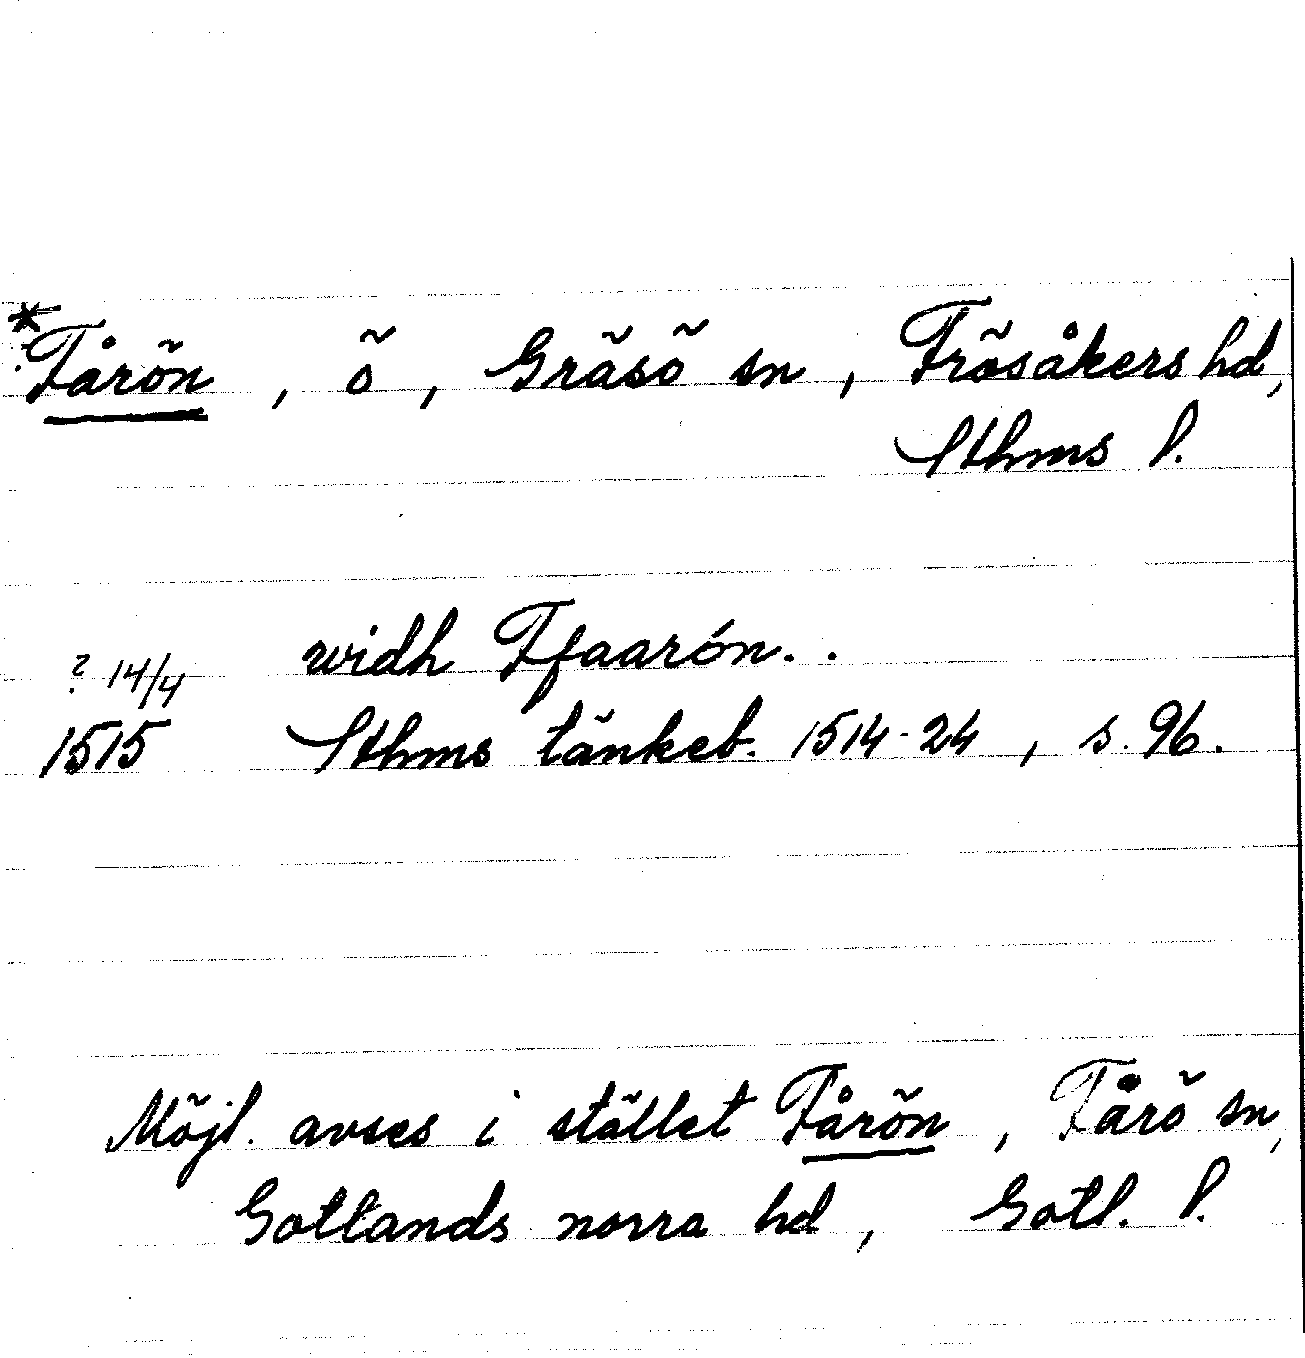 * Fårön, ö, Gräsö sn, Frösåkers hd,
Sthms l.
? 14/4 widh Ffaarón..
1515 Sthms tänkeb. 1514-24, s. 96.
Möjl. avses i stället Fårön, Fårö sn,
Gotlands norra hd, Gotl. l.